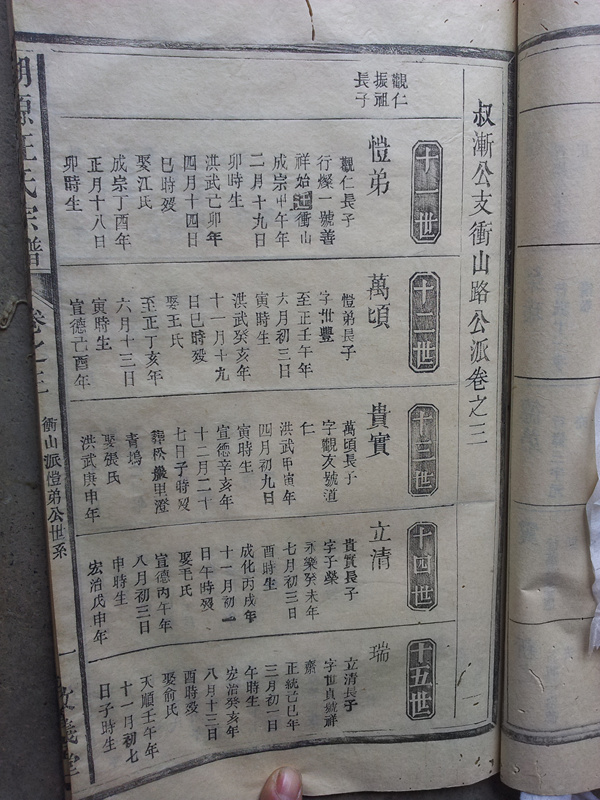 叔漸公支衝山路公派卷之三
觀仁
振祖
長子
十一世
愷弟
觀仁長子
行燦一號善
祥始迁衝山
成宗甲午年
二月十九日
卯時生
洪武亡卯年
四月十四日
巳時殁
娶江氏
成宗丁酉年
正月十八日
卯時生
十二世
萬頃
愷弟長子
字世豐
至正壬午年
六月初三日
寅時生
洪武癸亥年
十一月十九
日巳時殁
娶王氏
至正丁亥年
六月十三日
寅時生
宣德己酉年
十三世
貴實
萬頃長子
字觀友號道
仁
洪武甲寅年
四月初九日
寅時生
宣德辛亥年
十二月二十
七日子時殁
葬松巖里澄
青塢
娶張氏
洪武庚申年
十四世
立清
貴實長子
字子榮
永樂癸未年
七月初三日
酉時生
成化丙戌年
十一月初二
日午時殁
娶毛氏
宣德丙午年
八月初三日
申時生
宏治戊申年
十五世
瑞
立清長子
字世貞號祥
齋
正統己巳年
三月初一日
午時生
宏治癸亥年
八月十三日
酉時殁
娶俞氏
天順壬午年
十一月初七
日子時生
源汪氏宗譜
卷之三
衝山派愷弟公世系
一